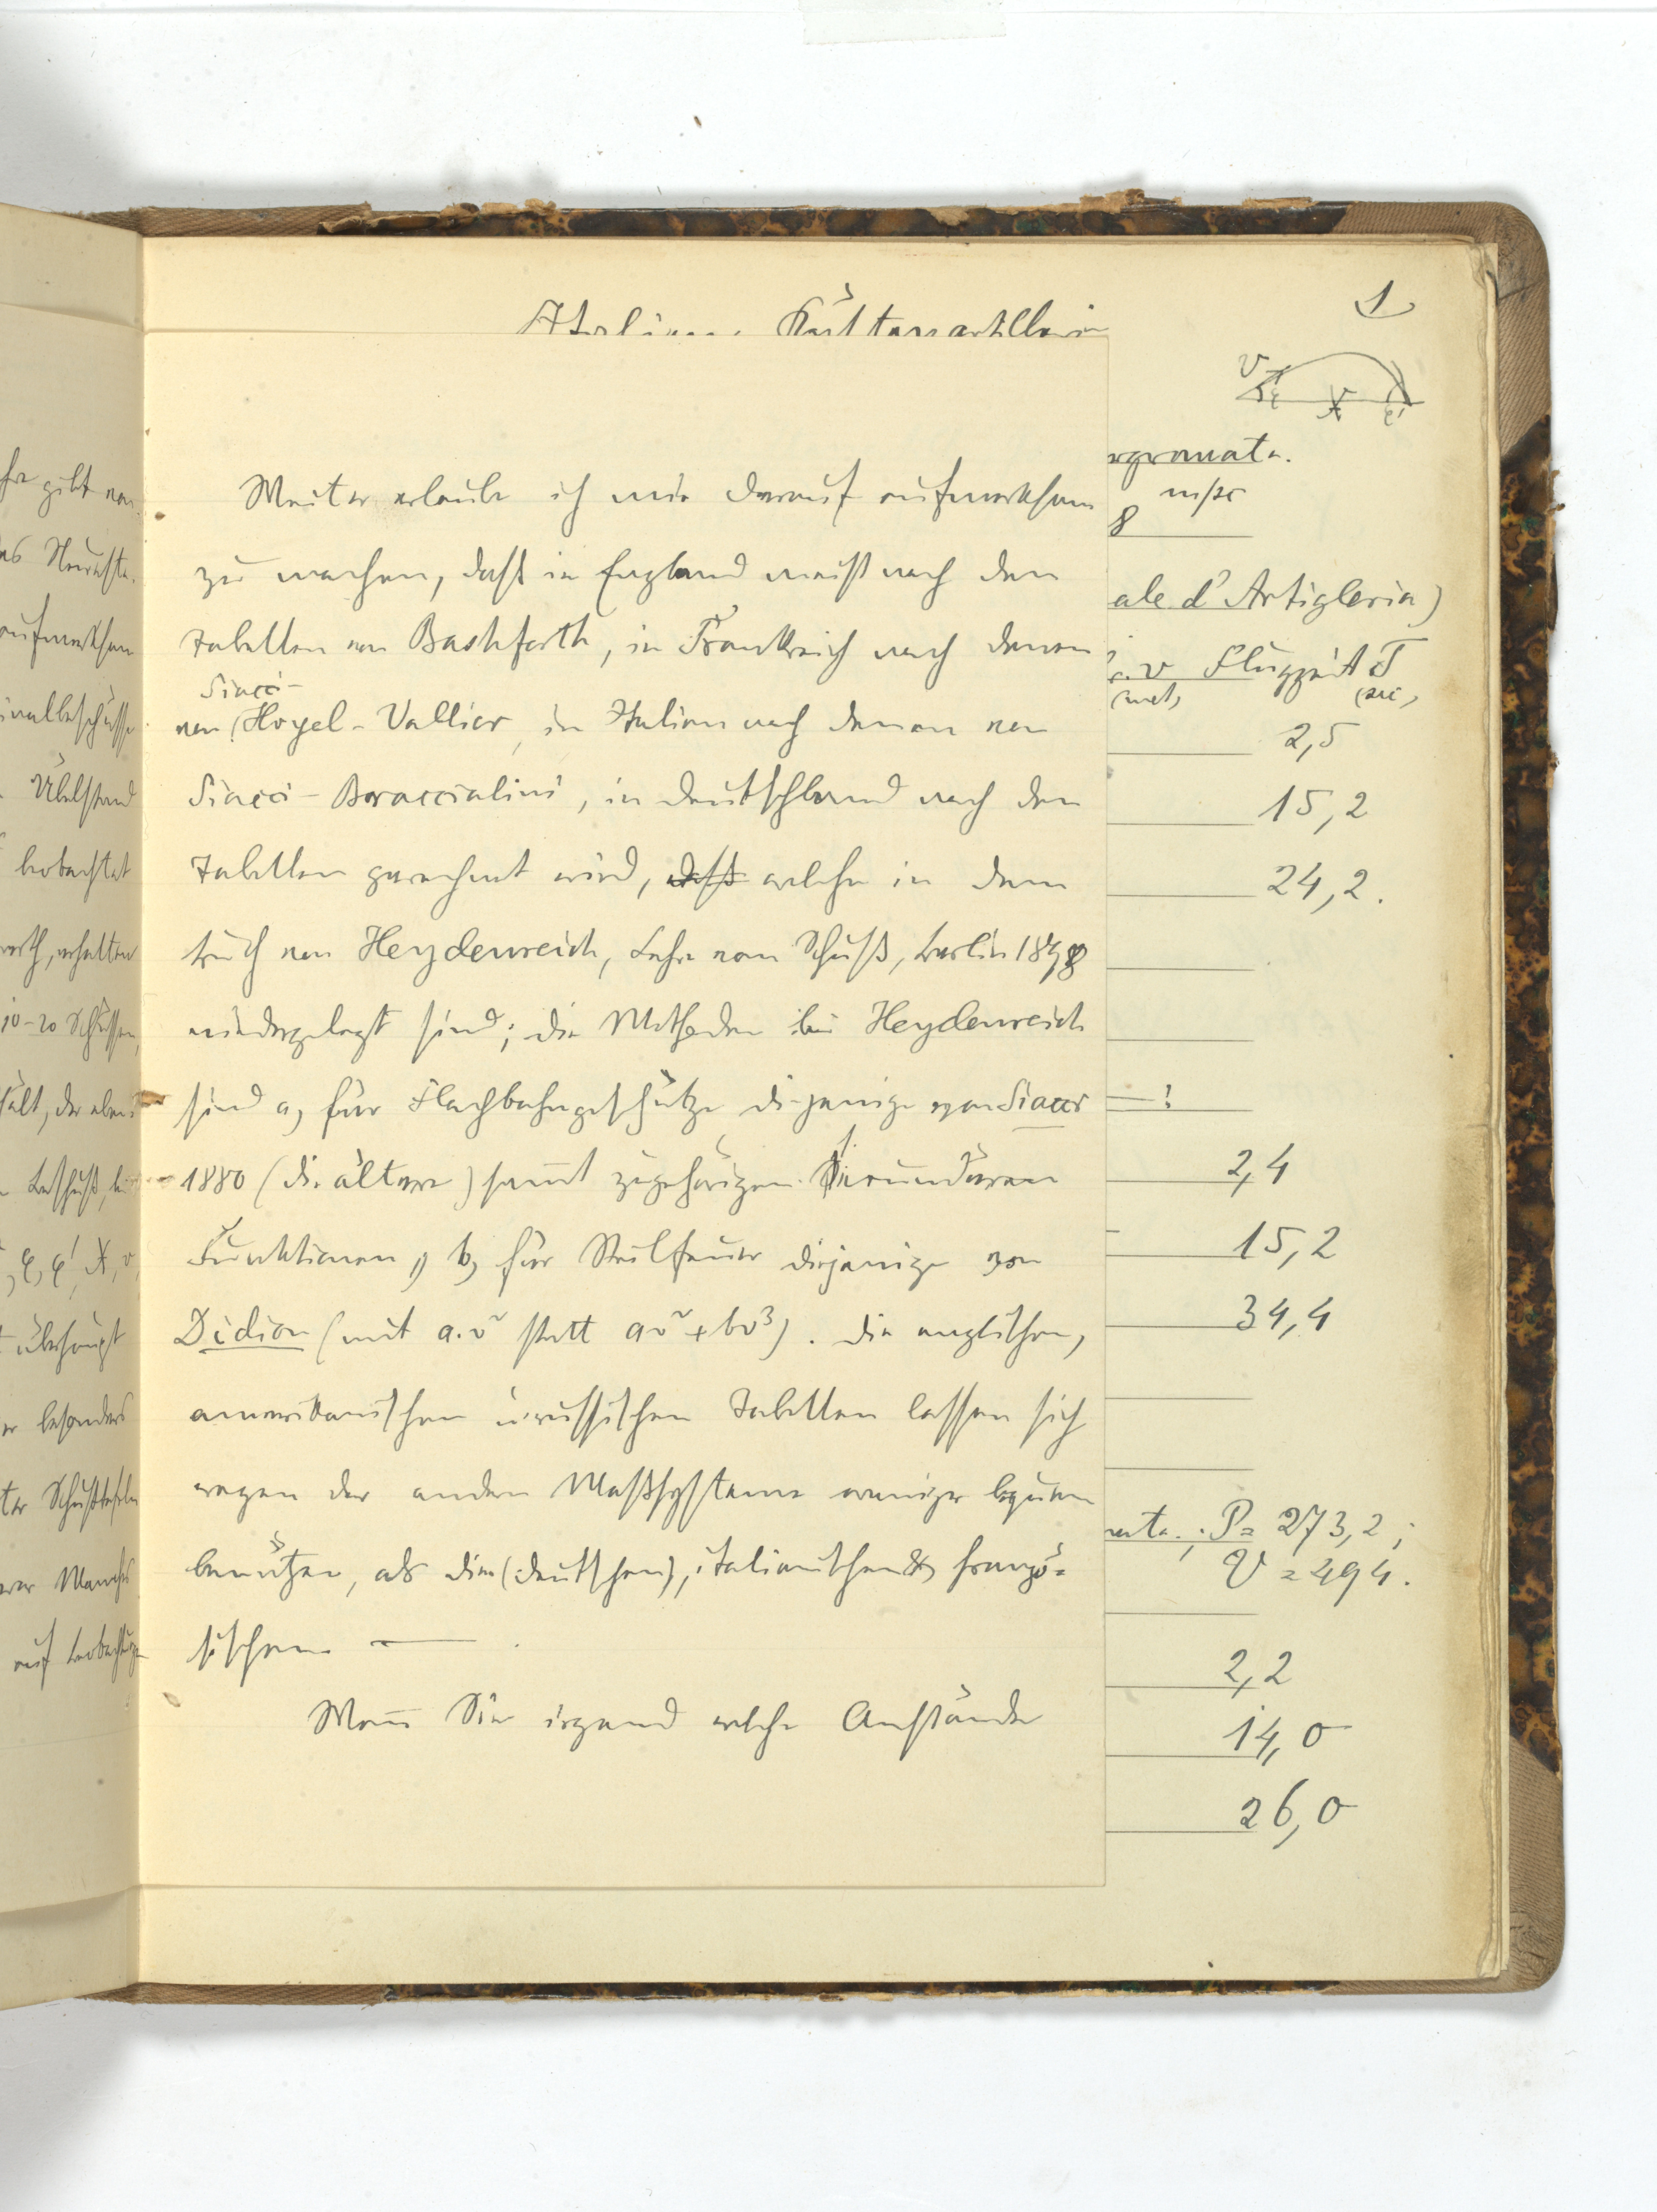 1
Italien. Küstenartillerie
v
φ X φ'
Weiter erlaube ich mir darauf aufmerksam
zu machen, daß in England meist nach den
Tabellen von Bashforth, in Frankreich nach denen
Siacci-
von Hojel-Vallier, in Italien nach denen von
Siacci-Braccialini, in Deutschland nach den
Tabellen gerechnet wird, daß welche in dem
Buch von Heydenreich, Lehre vom Schuß, Berlin 1898
niedergelegt sind; die Methoden bei Heydenreich
sind a, für Flachbahngeschütze diejenige von Siacci
1880 (die ältere) samt zugehörigen sekundären
Funktionen, b, für Steilfeuer diejenige von
Didion (mit a.v² statt av² + bv³). Die englischen,
amerikanischen u. russischen Tabellen lassen sich
wegen der andern Maßsysteme weniger bequem
benützen, als die (deutschen), italienischen & franzö=
sischen — .
Wenn Sie irgend welche Anstände
rgranate.
8 m/sc
ale d'Artigleria)
v Flugzeit T
(met) (sec)
2,5
15,2
24,2.
— !
2,4
15,2
34,4
nate.; P = 273,2;
V = 494.
2,2
14,0
26,0
gibt
das Neueste.
aufmerksam
Übelstand
beobachtet
erhalten
10-20 Schüssen,
φ, φ', X, v
überhaupt
besonders
Schußtafeln
Manches
auf Beobachtungen